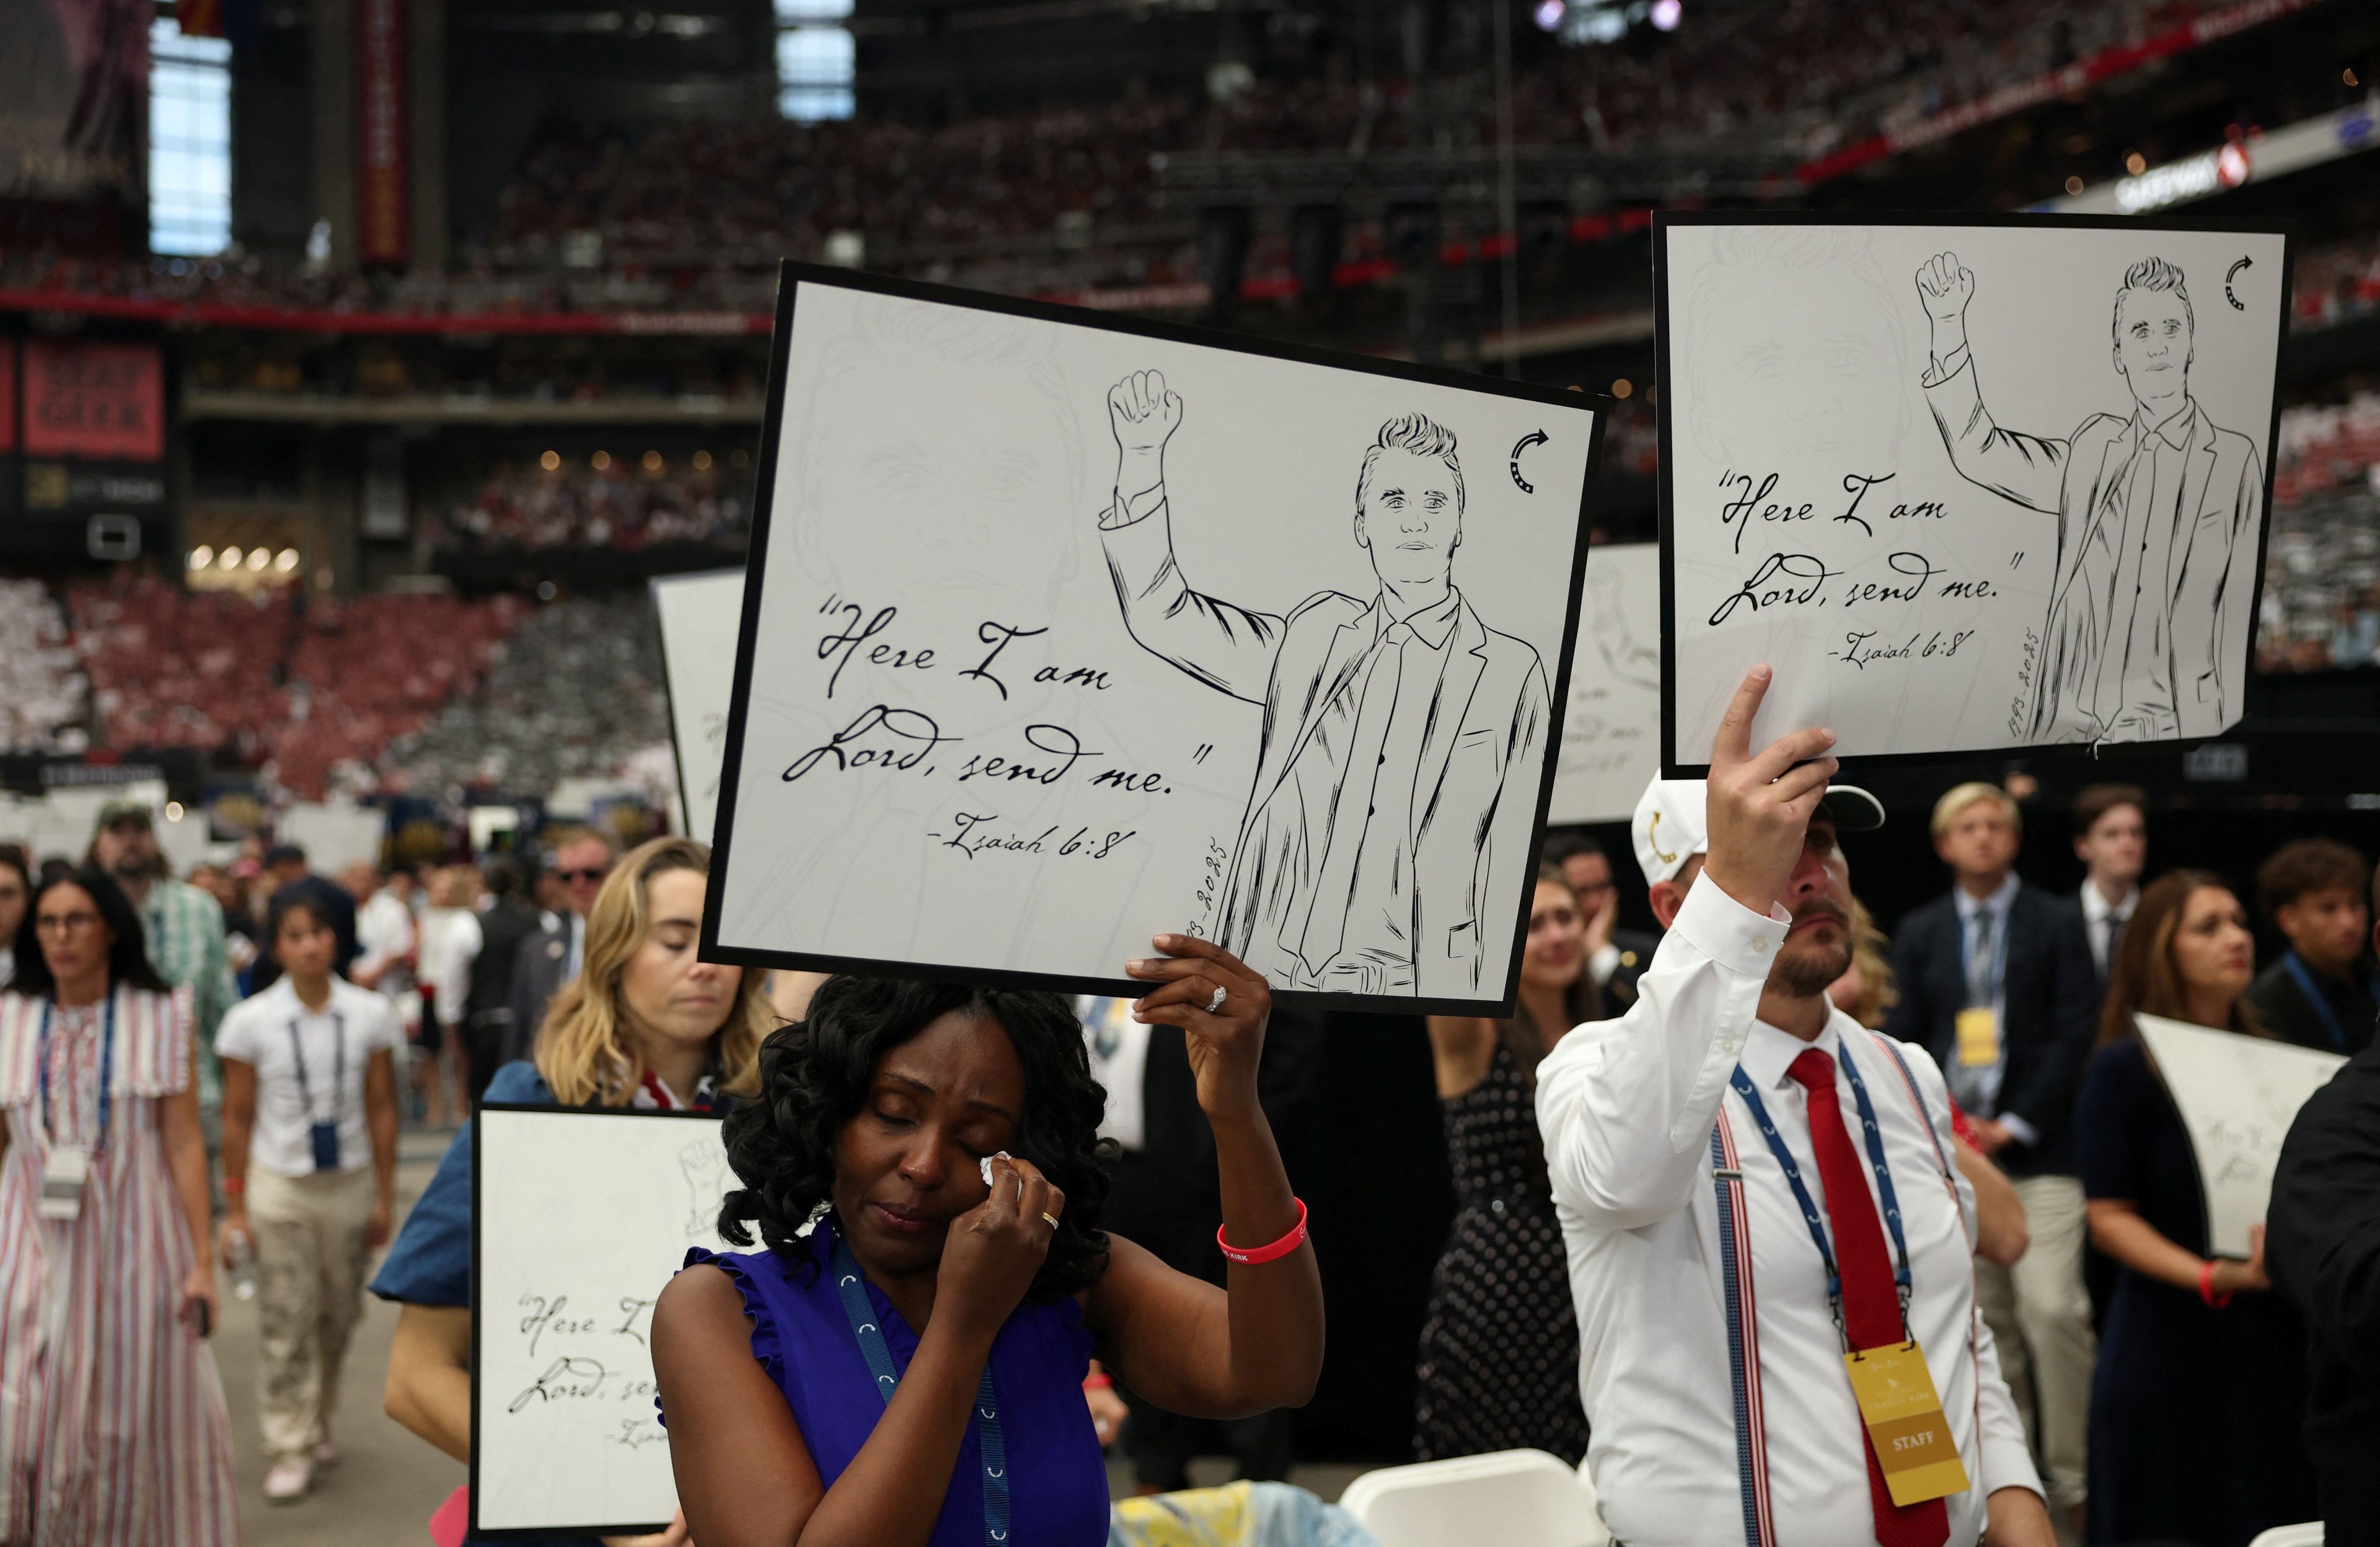 SEAT
GEEK
"Here I am
Lord, send me."
-Isaiah 6:8
93-2025
"Here I am
Lord, send me."
-Isaiah 6:8
1993-2025
"Here I
Lord, sen
KIRK
STAFF